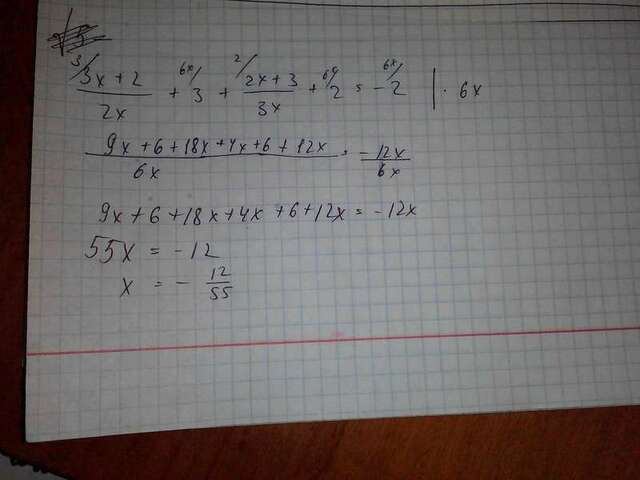 3/ 3x + 2 / 2x + 6x/ 3 + 2/ 2x + 3 / 3x + 6x/ 2 = - 6x/ 2 | · 6x
9x + 6 + 18x + 4x + 6 + 12x / 6x = - 12x / 6x
9x + 6 + 18x + 4x + 6 + 12x = - 12x
55x = - 12
x = - 12 / 55